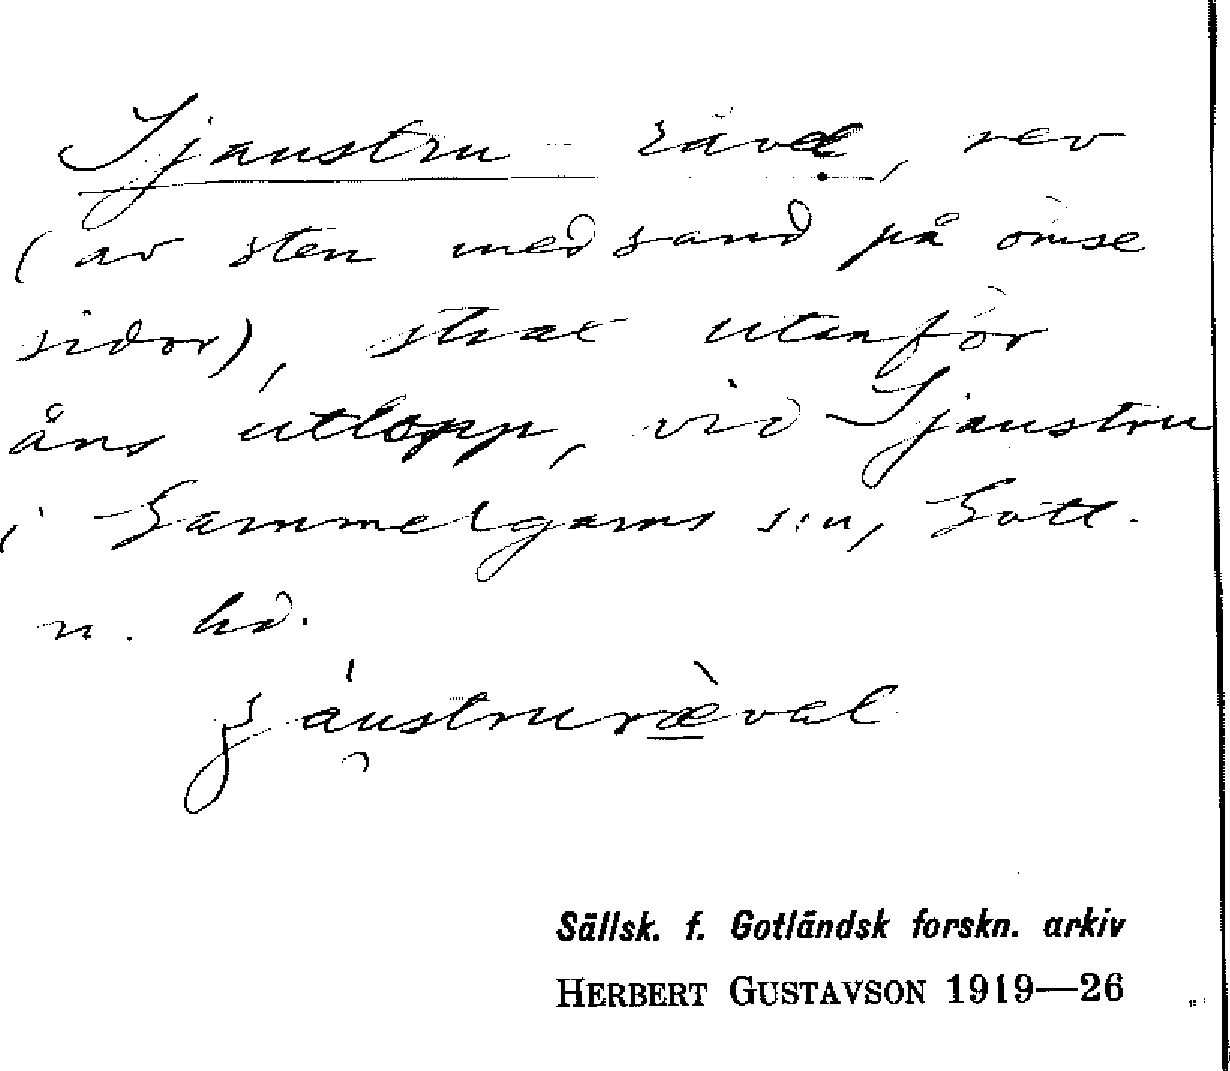 Sjaustru rävel, rev
(av sten med sand på ömse
sidor), strax utanför
åns utlopp, vid Sjaustru
i Gammelgarns s:n, Gotl.
n. hd.
Sällsk. f. Gotländsk forskn. arkiv
HERBERT GUSTAVSON 1919—26